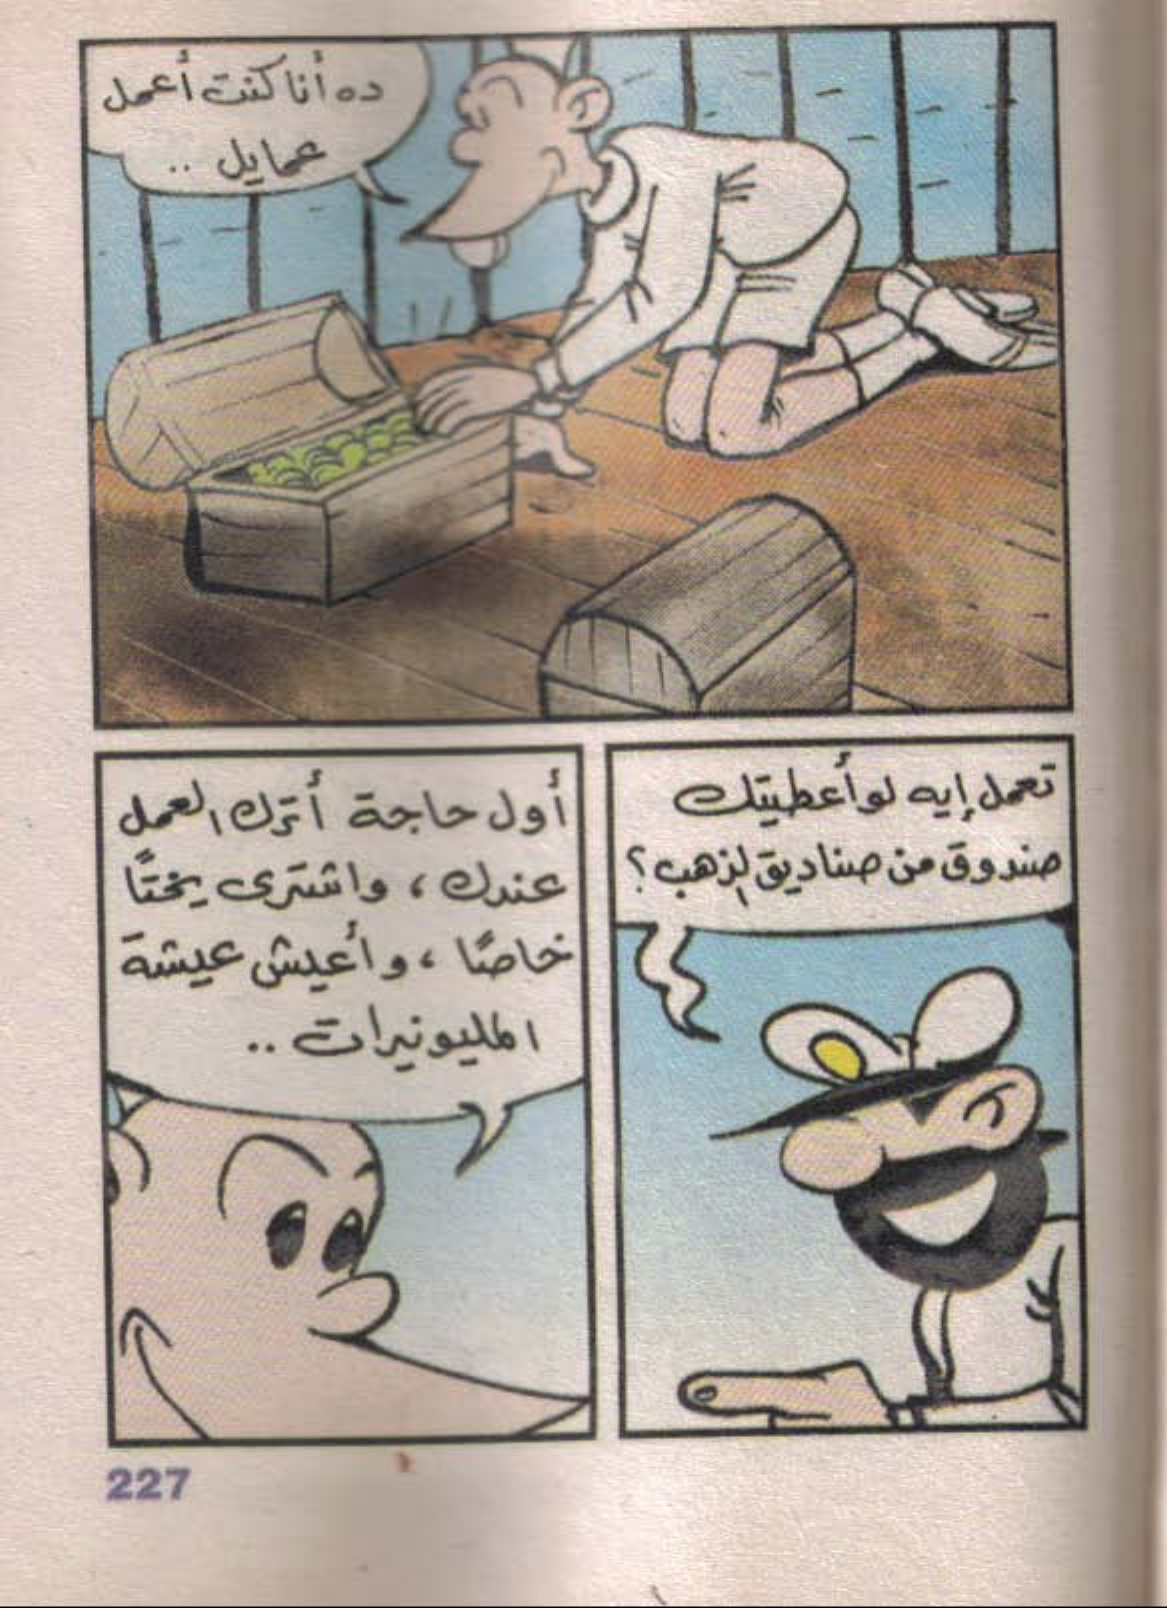 ده أنا كنت أعمل
عمايل ..
تعمل إيه لو أعطيتك
صندوق من صناديق الذهب ؟
أول حاجة أترك العمل
عندك ، واشترى يختًا
خاصًا ، وأعيش عيشة
المليونيرات ..
227